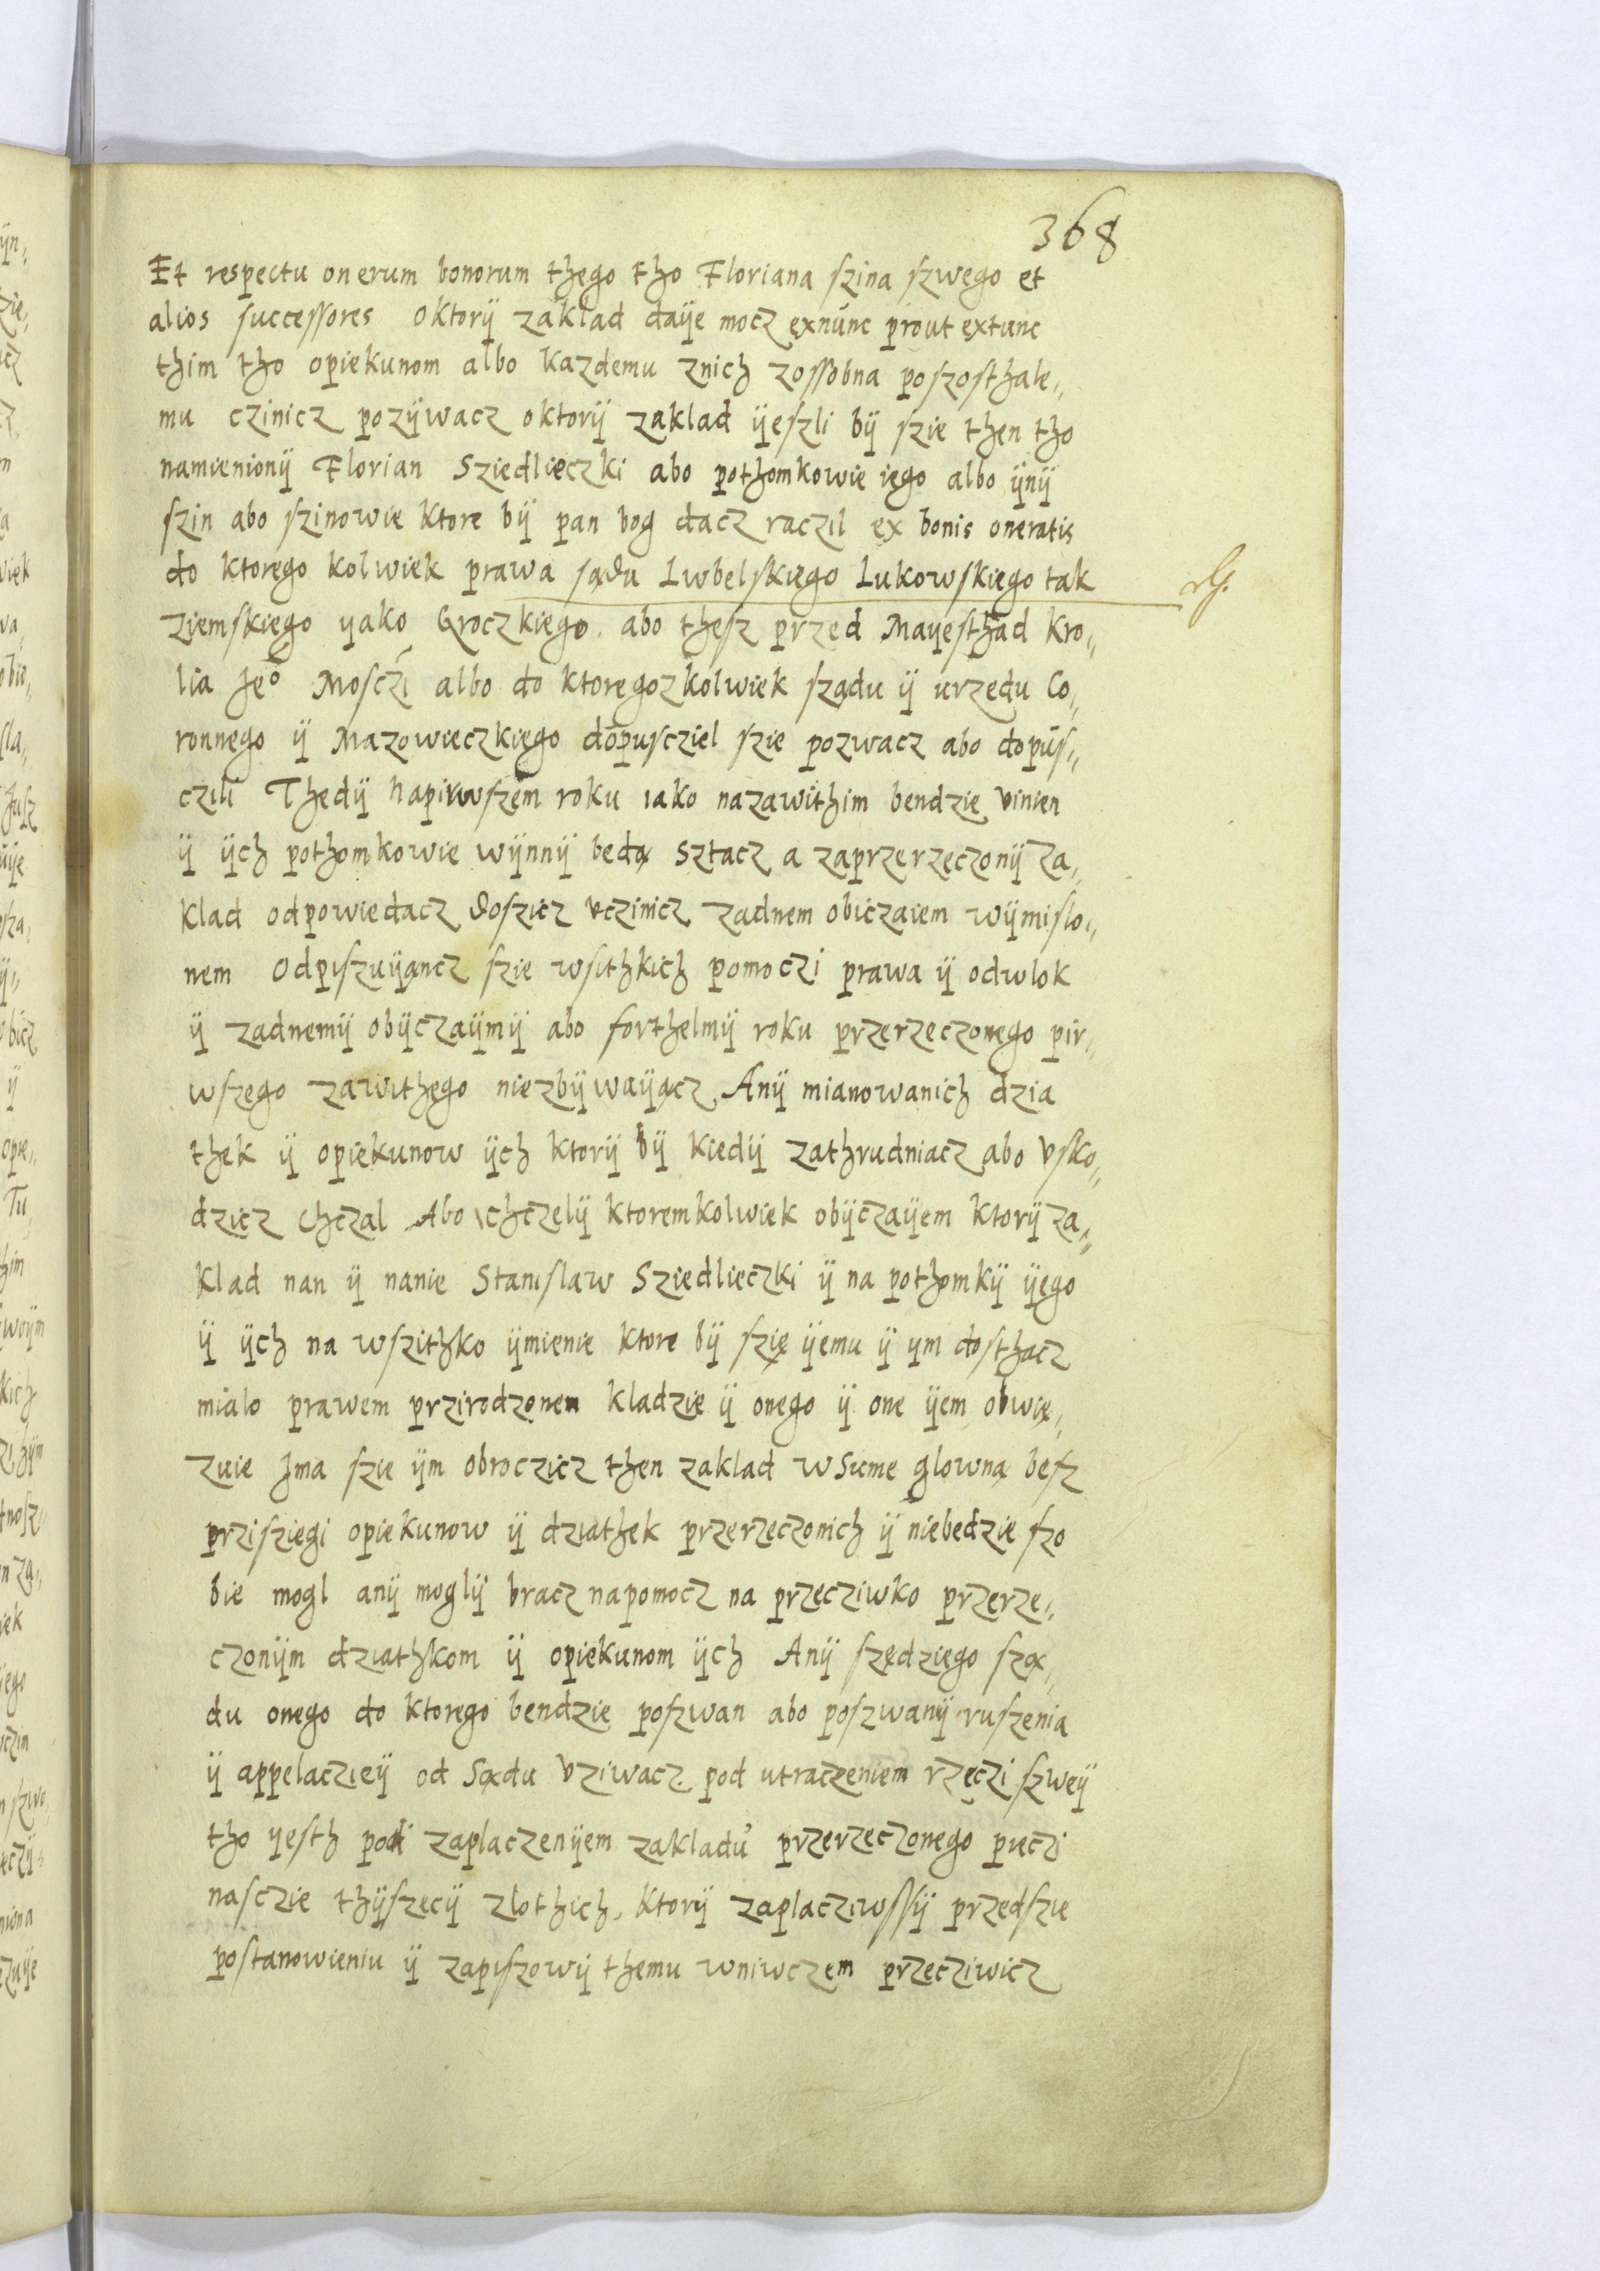 368
Et respectu onerum bonorum thego tho Floriana szina szwego et
alios successores Oktorÿ zaklad daÿe mocz exnunc prout extunc
thim tho opiekunom albo kazdemu znich zossobna poszosthale,,
mu czinicz pozÿwacz oktorÿ zaklad ÿeszli bÿ szie then tho
namienionÿ Florian Sziedlieczki abo pothomkowie iego albo ÿnÿ
szin abo szinowie ktore bÿ pan bog dacz raczil ex bonis oneratis
do ktorego kolwiek prawa sądu Lwbelskiego Lukowskiego tak
ziemskiego yako Groczkiego abo thesz przed Mayesthad kro,,
lia Jeo Mosczi albo do ktoregozkolwiek sządu ÿ urzedu Co,,
ronnego ÿ Mazowieczkiego dopusciel szie pozwacz abo dopus,,
czili Thedÿ napirwszem roku iako nazawithim bendzie vinien
ÿ ÿch pothomkowie wÿnnÿ bedą sztacz a zaprzerzeczonÿ za,,
klad odpowiedacz doszicz vczinicz zadnem obiczaiem wÿmislo,,
nem Odpiszuÿancz szie wsithkich pomoczi prawa ÿ odwlok
ÿ zadnemÿ obÿczaÿmÿ abo forthelmÿ roku przerzeczonego pir,,
wszego zawithego niezbÿwaÿącz Anÿ mianowanich dzia
thek ÿ opiekunow ÿch ktorÿ bÿ kiedÿ zathrudniacz abo vsko,,
dzicz chczal Abo chczelÿ ktoremkolwiek obÿczaÿem ktorÿ za,,
klad nan ÿ nanie Stanislaw Sziedlieczki ÿ na pothomkÿ ÿego
ÿ ÿch na wszithko ÿmienie ktore bÿ szię ÿemu ÿ ym dosthacz
mialo prawem przirodzonem kladzie ÿ onego ÿ one ÿem obwię,,
zuie Jma szie ÿm obroczicz then zaklad w Sume glowną besz
prziszięgi opiekunow ÿ dziathek przerzeczonich ÿ niebedzie szo
bie mogl anÿ moglÿ bracz napomocz na przecziwko przerze,,
czonÿm dziathkom ÿ opiekunom ÿch Anÿ szędziego szą,,
du onego do ktorego bendzie poszwan abo poszwanÿ ruszenia
ÿ appelaczieÿ od Sądu vziwacz pod utraczeniem rzęczi szweÿ
tho yesth pod zaplaczenÿem zakladu przerzeczonego pięczi
nasczie thÿszęcÿ zlothich, ktorÿ zaplacziwssÿ przedszie
postanowieniu ÿ zapiszowÿ themu wniwczem przecziwicz